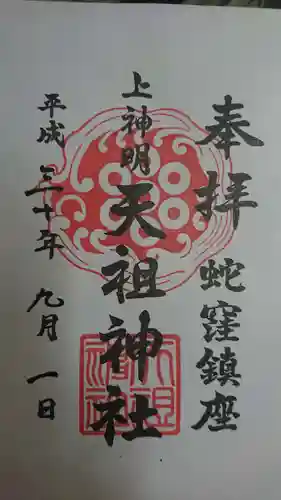 奉拝 蛇窪鎮座
上神明
天祖神社
平成三十年 九月 一日